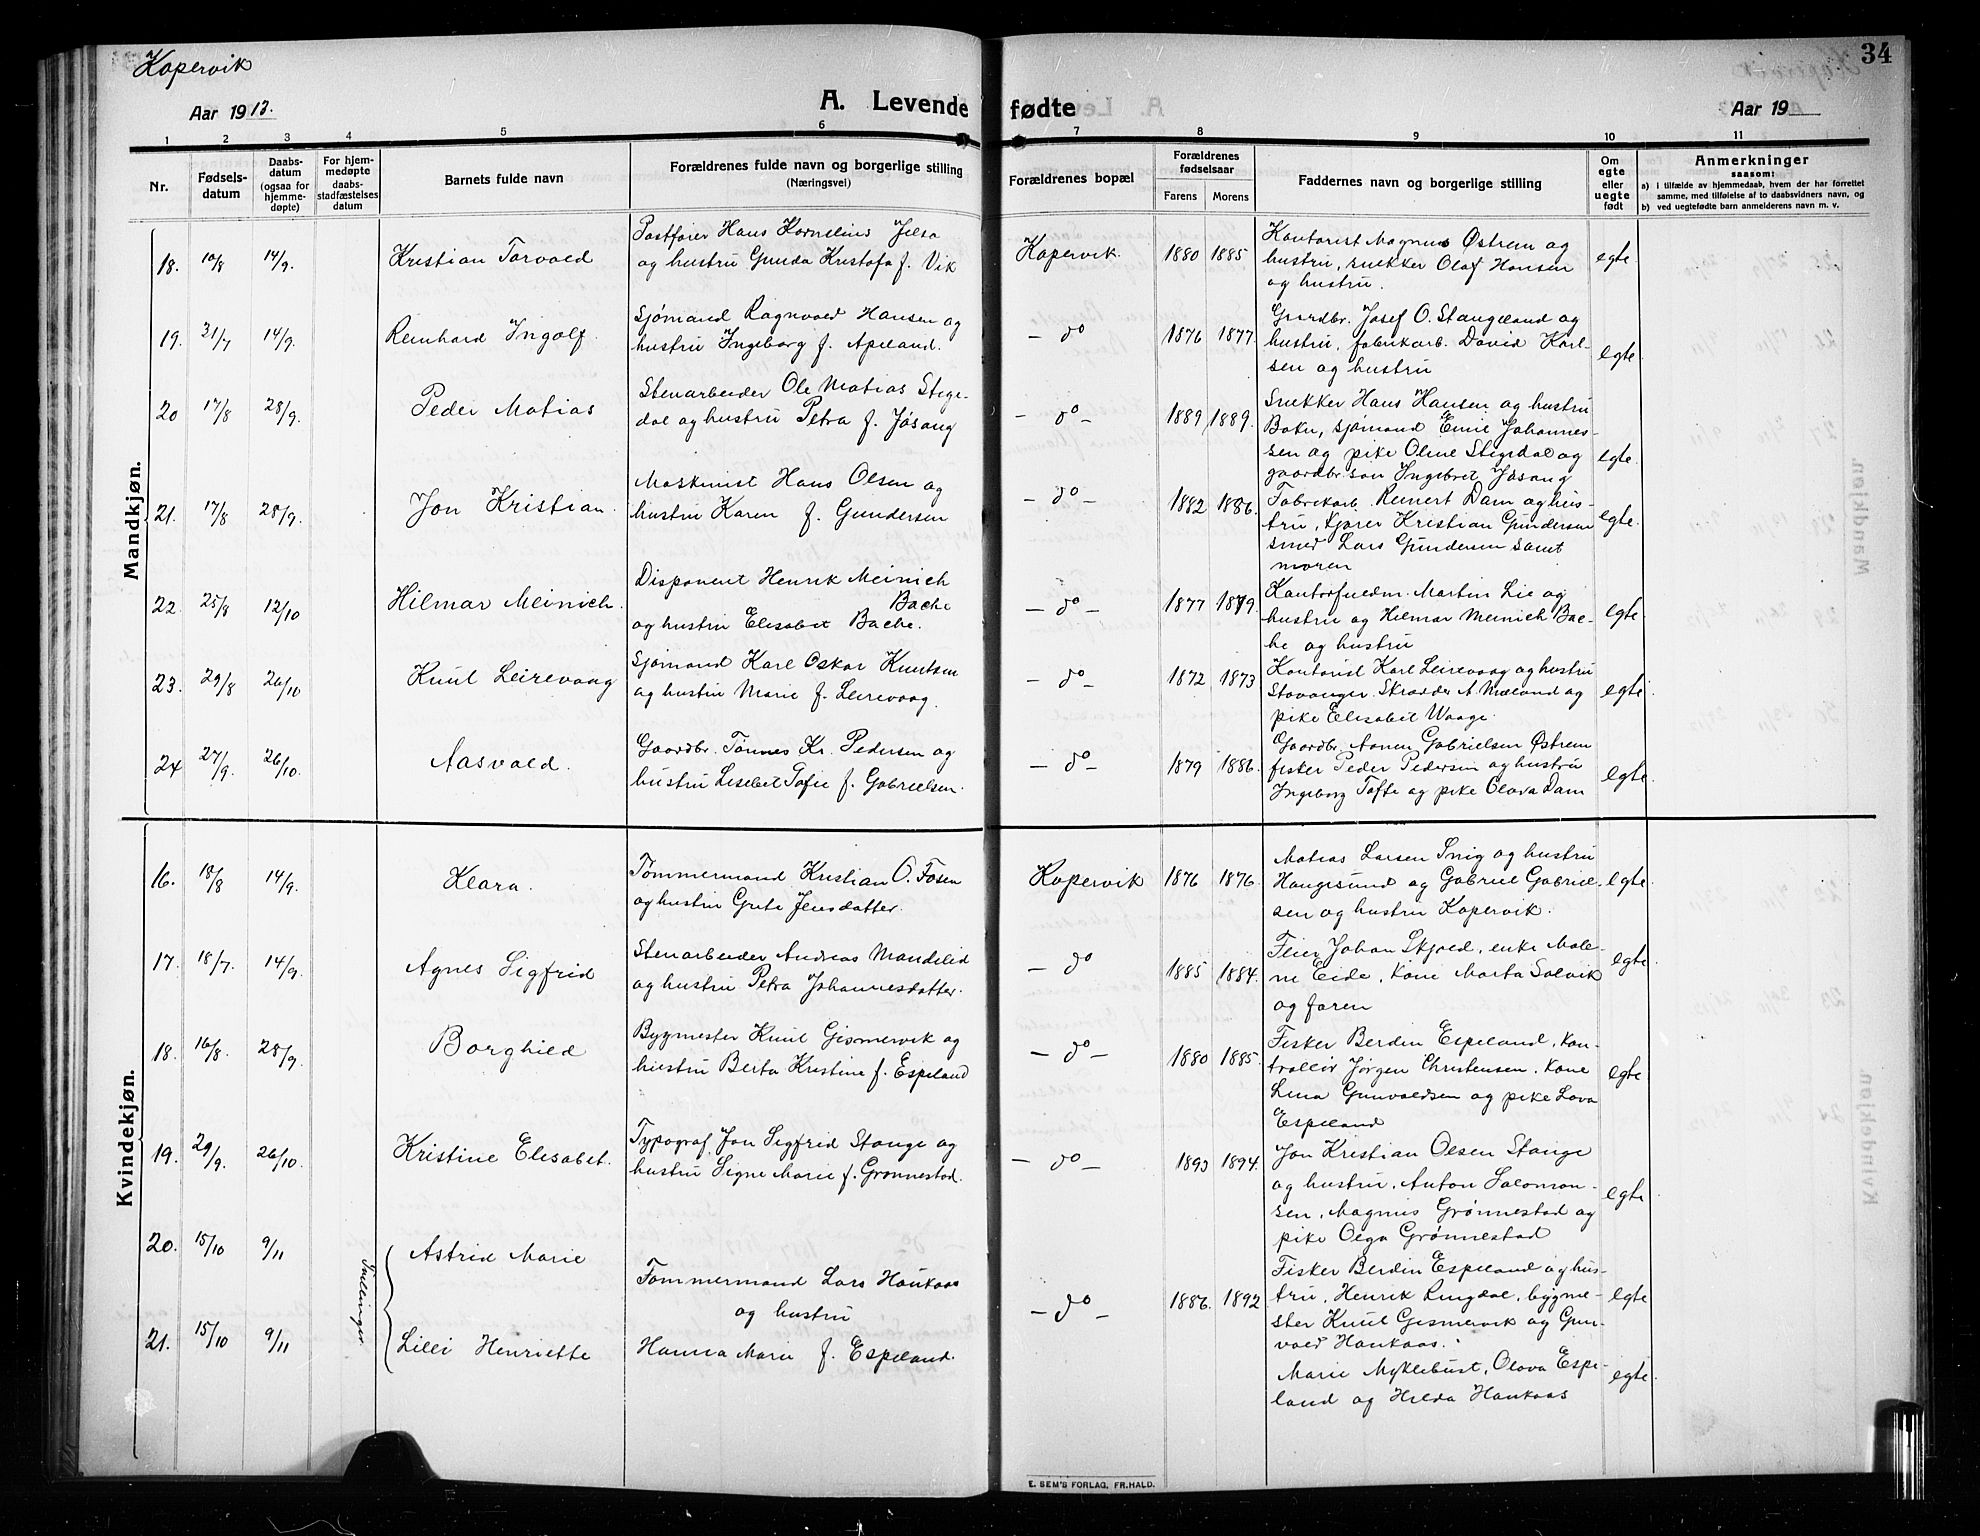 Kopervik
34
Aar 1913.
A. Levende fødte
Aar 19
1 2 3 4 5 6 7 8 9 10 11
Nr.
Fødsels-
datum
Daabs-
datum
(ogsaa for
hjemme-
døpte)
For hjem-
medøpte
daabs-
stadfæstelses
datum
Barnets fulde navn
Forældrenes fulde navn og borgerlige stilling
(Næringsvei)
Forældrenes bopæl
Forældrenes
fødselsaar
Farens Morens
Faddernes navn og borgerlige stilling
Om
egte
eller
uegte
født
Anmerkninger
saasom:
a) i tilfælde av hjemmedaab, hvem der har forrettet
samme, med tilføielse af to daabsvidners navn, og
b) ved uegtefødte barn anmelderens navn m. v.
Mandkjøn.
18. 10/8 14/9. Kristian Torvald
Postfører Hans Kornelius Jelsa
og hustru Gunda Kristofa f. Vik
Kopervik. 1880 1885
Kontorist Magnus Østrem og
hustru, snekker Olaf Hansen
og hustru.
egte
19. 31/7 14/9. Reinhard Ingolf.
Sjømand Ragnvald Hansen og
hustru Ingeborg f. Apeland.
- do 1876 1877
Gaardbr. Josef O. Stangeland og
hustru, fabrikarb. David Karl-
sen og hustru
egte
20 17/8 28/9. Peder Matias
Stenarbeider Ole Matias Stige-
dal og hustru Petra f. Jøsang
- do - 1889 1889.
Snekker Hans Hansen og hustru
Bokn, sjømand Emil Johannes-
sen og pike Oline Stigedal og
gaardbr. søn Ingebret Jøsang
egte.
21. 17/8 28/9. Jon Kristian.
Maskinist Hans Olsen og
hustru Karen f. Gundersen
- do - 1882 1886.
Fabrekarb. Reinert Dam og hus-
tru, kjører Kristian Gundersen
smed Lars Gundersen samt
moren
egte.
22. 25/8 12/10 Hilmar Meinich.
Disponent Henrik Meinich
Bache
og hustru Elisabet Bache.
- do - 1877 1879.
Kontorfuldm. Martin Lie og
hustru og Hilmar Meinich Bac-
he og hustru
egte.
23. 29/8 26/10 Knut Leirevaag
Sjømand Karl Oskar Knutsen
og hustru Marie f. Leirevaag.
- do - 1872 1873
Kontorist Karl Leirevaag og hustru
Stavanger. Skrædder A. Mæland og
pike Elisabet Waage.
egte
24 27/9. 26/10. Aasvald.
Gaardbr. Tønnes Kr. Pedersen og
hustru Lisebet Tofie f. Gabrielsen.
- do - 1879 1886.
Gaardbr. Aanen Gabrielsen Østrem
fisker Peder Pedersen og hustru
Ingeborg Tofte og pike Olava Dam
egte.
Kvindekjøn.
16. 18/8 14/9. Klara.
Tømmermand Kristian O. Fosen
og hustru Grete Jensdatter.
Kopervik 1876 1876.
Matias Larsen Snig og hustru
Haugesund og Gabriel Gabriel-
sen og hustru Kopervik.
egte.
17. 18/7. 14/9. Agnes Sigfrid
Stenarbeider Andreas Mandelid
og hustru Petra Johannesdatter.
- do 1885 1884.
Feier Johan Skjold, enke Male-
ne Eide, kone Marta Solvik
og faren
egte.
18. 16/8. 28/9. Borghild
Bygmester Knut Gismervik og
hustru Berta Kristine f. Espeland
- do - 1880 1885.
Fisker Berdin Espeland, kon-
trollør Jørgen Christensen, kone
Lina Gunvaldsen og pike Lova
Espeland
egte.
19. 29/9. 26/10. Kristine Elisabet.
Typograf Jon Sigfrid Stange og
hustru Signe Marie f. Grønnestad.
- do - 1893 1894.
Jon Kristian Olsen Stange
og hustru, Anton Salomon-
sen, Magnus Grønnestad og
pike Olga Grønnestad
egte
20. 15/10 9/11 Astrid Marie
Tvillinger
Tømmermand Lars Haukaas
og hustru
Hanna Marie f. Espeland.
- do - 1886. 1892
Fisker Berdin Espeland og hus-
tru, Henrik Ringdal, bygme-
ster Knut Gismervik og Gun-
vald Haukaas.
egte
21. 15/10 9/11 Lilli Henriette
Marie Myklebust, Olava Espe-
land og Hilda Haukaas
egte
E. SEM'S FORLAG, FR.HALD.